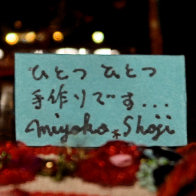 ひとつ ひとつ
手作りです...
Miyoko*Shoji